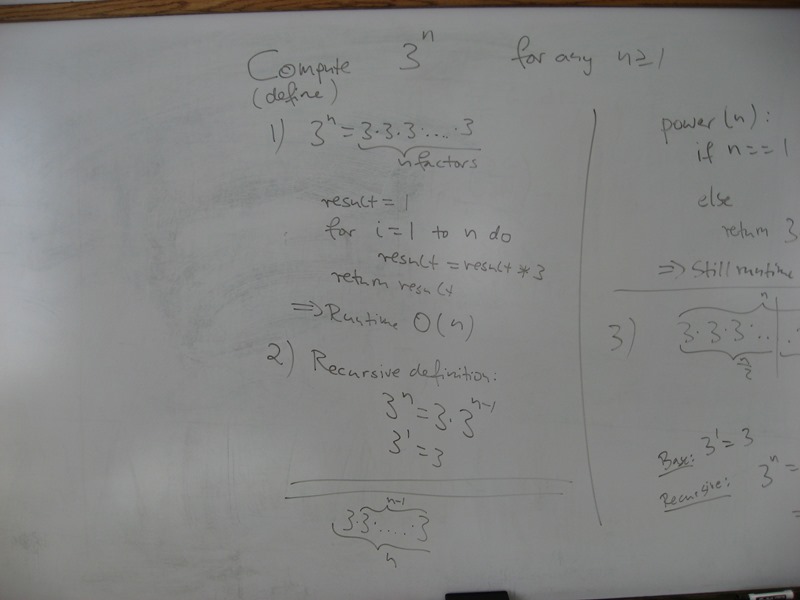 Compute 3^n for any n≥1
(define)
1) 3^n = 3·3·3·....·3
n factors
result = 1
for i=1 to n do
result = result * 3
return result
⇒ Runtime O(n)
2) Recursive definition:
3^n = 3·3^(n-1)
3^1 = 3
n-1
3·3·.....·3
n
power(n):
if n==1
else
return 3
⇒ Still runtime
n
3) 3·3·3·..
n/2
Base: 3^1 = 3
Recursive: 3^n =
=